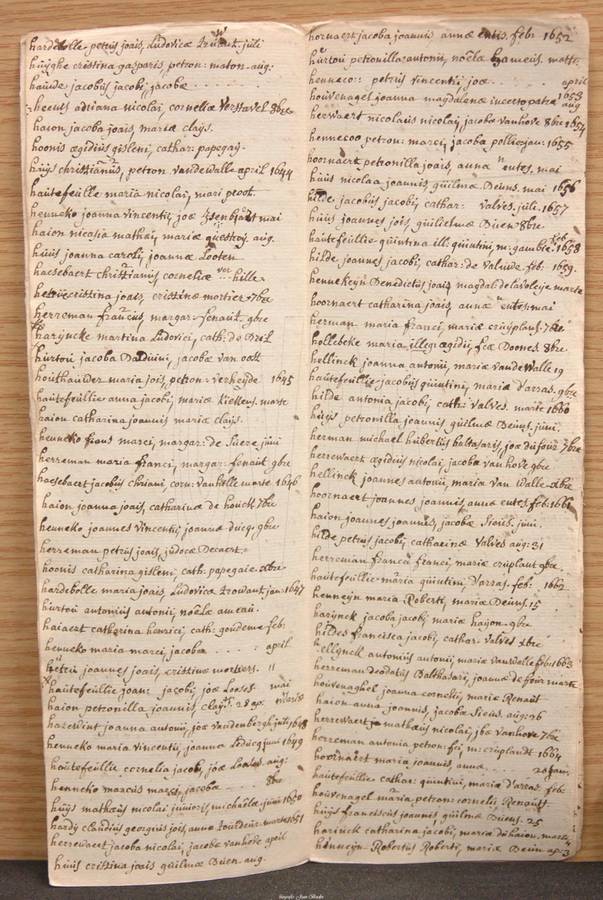 hardebolle petrus joais, Ludovicæ juli
huyghe cristina gasparis, petron: maton. aug:
haude jacobus jacobi, jacobæ
heens adriana nicolai, corneliæ Verstavel 8bre
haion jacoba joais, mariæ clays.
hoonis ægidius gisleni, cathar: papegay.
huys christianus, petron vandewalle april 1644
hautefeuille maria nicolai, mari proot.
henneko joanna vincentij, joæ mai
haion nicasia mathæi, mariæ questroy. aug.
huus joanna caroli, joannæ Looten
haesebaert christianus corneliæ ver hille
cristina joais, cristinæ mortier 7bre
herreman francus, margar: fenaut. 9bre
harijncke martina Ludovici, cath: de
hurtou jacoba Balduini, jacobæ van oost
houthaulder maria jois, petron: verheyde 1645
hautefeullie anna jacobi, mariæ marte
haion catharina joannis mariæ clays.
henneko marci, margar: de Suere juni
herreman maria franci, margar: fenaut 9bre
haesebaert jacobus chriani, corn: vanhille marte 1646
haion joanna joais, catharinæ de houck 7bre
henneko joannes vincentij joannæ ducq. 9bre
herreman petrus joais, judocæ Decaert
hoonis catharina gisleni, cath: papegaie. xbre
hardebolle maria joais, Ludovicæ trowant jan: 1647
hurtou antonius antonij, noëlæ
haiaert catharina henrici, cath: goudeme feb:
henneko maria marci, jacobæ april
joannes joais, cristinæ mortiers. 11
hautefeullie joan: jacobi, joæ Looses. mai
haion petronilla joannis, clays. 28 ap:
hazewint joanna antonij, joæ vandenbergh juli 1648
henneko maria vincentij, joannæ Leducq juni 1649
hautefeullie cornelia jacobi, joæ Looses. aug:
henneko marcus marci, jacobæ 8bre
huys mathæus nicolai junioris, michaëlæ juni 1650
hardy claudius georgius jois, annæ martis 1651
herrewaert jacoba nicolai, jacobæ vanhove april
huus cristina joais guilmæ Duen. aug.
hornaert jacoba joannis annæ entes. feb: 1652
hurtou petronilla antonij, noëla marte.
henneco: petrus vincentij joæ april
houvenagel joanna magdalenæ incerto patre 1653 aug
herwaert nicolaus nicolai, jacobæ vanhove 8bre 1654
hennecoo petron: marci, jacoba pollie jan: 1655
hoornaert petronilla joais, annæ entes. mai
huus nicolaa joannis, guilmæ Deuns. mai 1656
hilde jacobus jacobi, cathar: valves. juli. 1657
huus joannes jois, guilielmæ Duen 8bre
hautefeullie quintina ill: quintini, m: gambie feb 1658
hilde joannes jacobi, cathar: de Valwue. feb: 1659.
henneken Benedictus joais magdal: delavoleije marte
hoornaert catharina joais, annæ entes: mai
herman maria franci mariæ cruyplans. 7bre
hollebeke maria illeg: ægidij, fcæ Doones. 8bre
hellinck joanna antonij, mariæ vandewalle 19
hautefeullie jacobus quintini, mariæ Varras. 9bre
hilde antonia jacobi, cath: Valves. marte 1660
huys petronilla joannis guilmæ Deuns. juni:
herman michael hubertus baltasaris, joæ du four 7bre
herrewaert ægidius nicolai, jacobæ van hove 9bre
hellinck joannes antonij, maria van Walle xbre
hoornaert joannes joannis, annæ entes. feb: 1661
haion joannes joannis, jacobæ Sioris. juni:
hilde petrus jacobi, catharinæ Valves aug: 31
herreman franca franci, mariæ cruplant 9bre
hautefeullie maria quintini, Varras. feb: 1662
henneyn maria Roberti, mariæ Deuns. 15
harijnck jacoba jacobi, maria haijon. 9bre
hildes francisca jacobi, cathar. Valves xbre
hellynck antonius antonij, mariæ vandewalle feb: 1663
herreman deodatus Balthasaris, joannæ de four marte
houvenaghel joanna cornelij, mariæ Renaut
haion anna joannis, jacobæ Sieus. aug: 26
herrewaert mathæus nicolai, jbæ vanhove 7bre
herreman antonia petron: fci, m: cruplandt 1664
hoornaert maria joannis, annæ
hautefeullie cathar: quintini, mariæ Varras. feb:
houvenagel maria petron: cornelij, Renautt.
huys franciscus joannis, guilmæ Duens. 25
harinck catharina jacobi, maria de haion. marte
henneyn Robertus Roberti, mariæ Deuns ap: 3